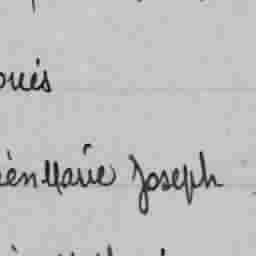 oués
ièn Marie Joseph